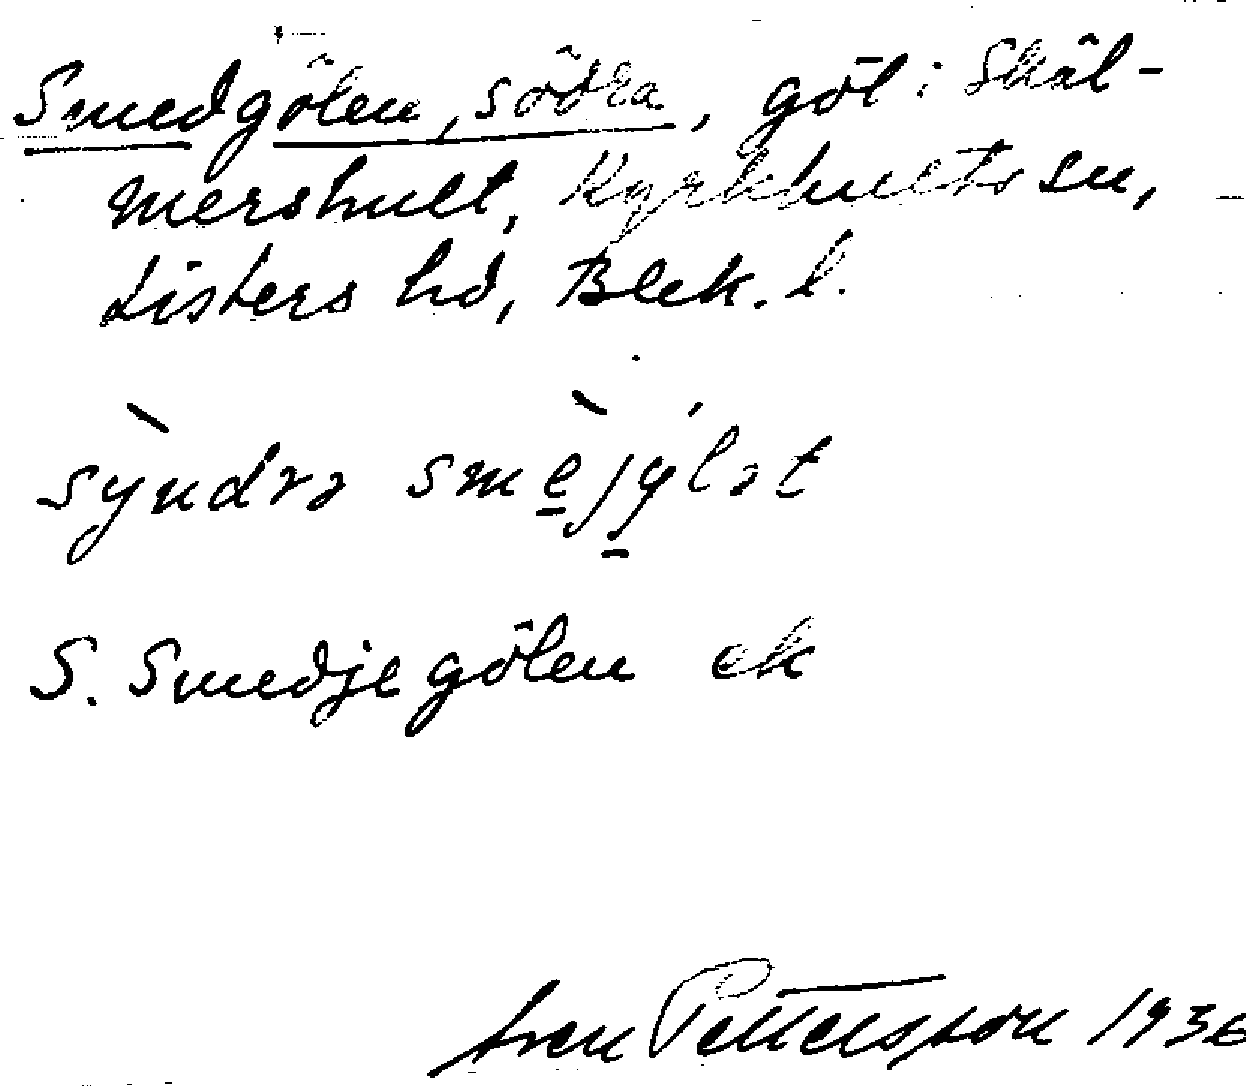 Smedgölen, södra, göl i Skäl-
mershult, Kyrkhults sn,
Listers hd, Blek. l.
sỳndrə smèjýlət
S. Smedjegölen ek
Sven Pettersson 1936